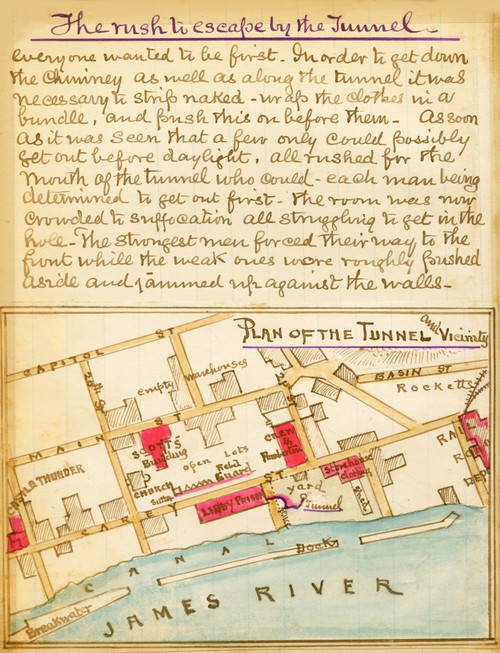 The rush to escape by the Tunnel.
everyone wanted to be first. In order to get down
the Chimney as well as along the tunnel it was
necessary to strip naked - wrap the clothes in a
bundle, and push this on before them - As soon
as it was seen that a few only could possibly
get out before daylight, all rushed for the
mouth of the tunnel who could - each man being
determined to get out first - the room was now
crowded to suffocation all struggling to get in the
hole - The strongest men forced their way to the
front while the weak ones were roughly pushed
aside and jammed up against the walls -
PLAN OF THE TUNNEL and Vicinity
CAPITOL ST
BASIN ST
Rocketts
empty
Warehouses
MAIN ST
SCOTTS
Building
CREW
&
Pemberton
CASTLE THUNDER
open Lots
Rebel
Guard
CHURCH
Storehouse
clothing
yard
shed
Tunnel
LIBBY PRISON
CAREY ST
CANAL
DOCK
JAMES RIVER
Breakwater